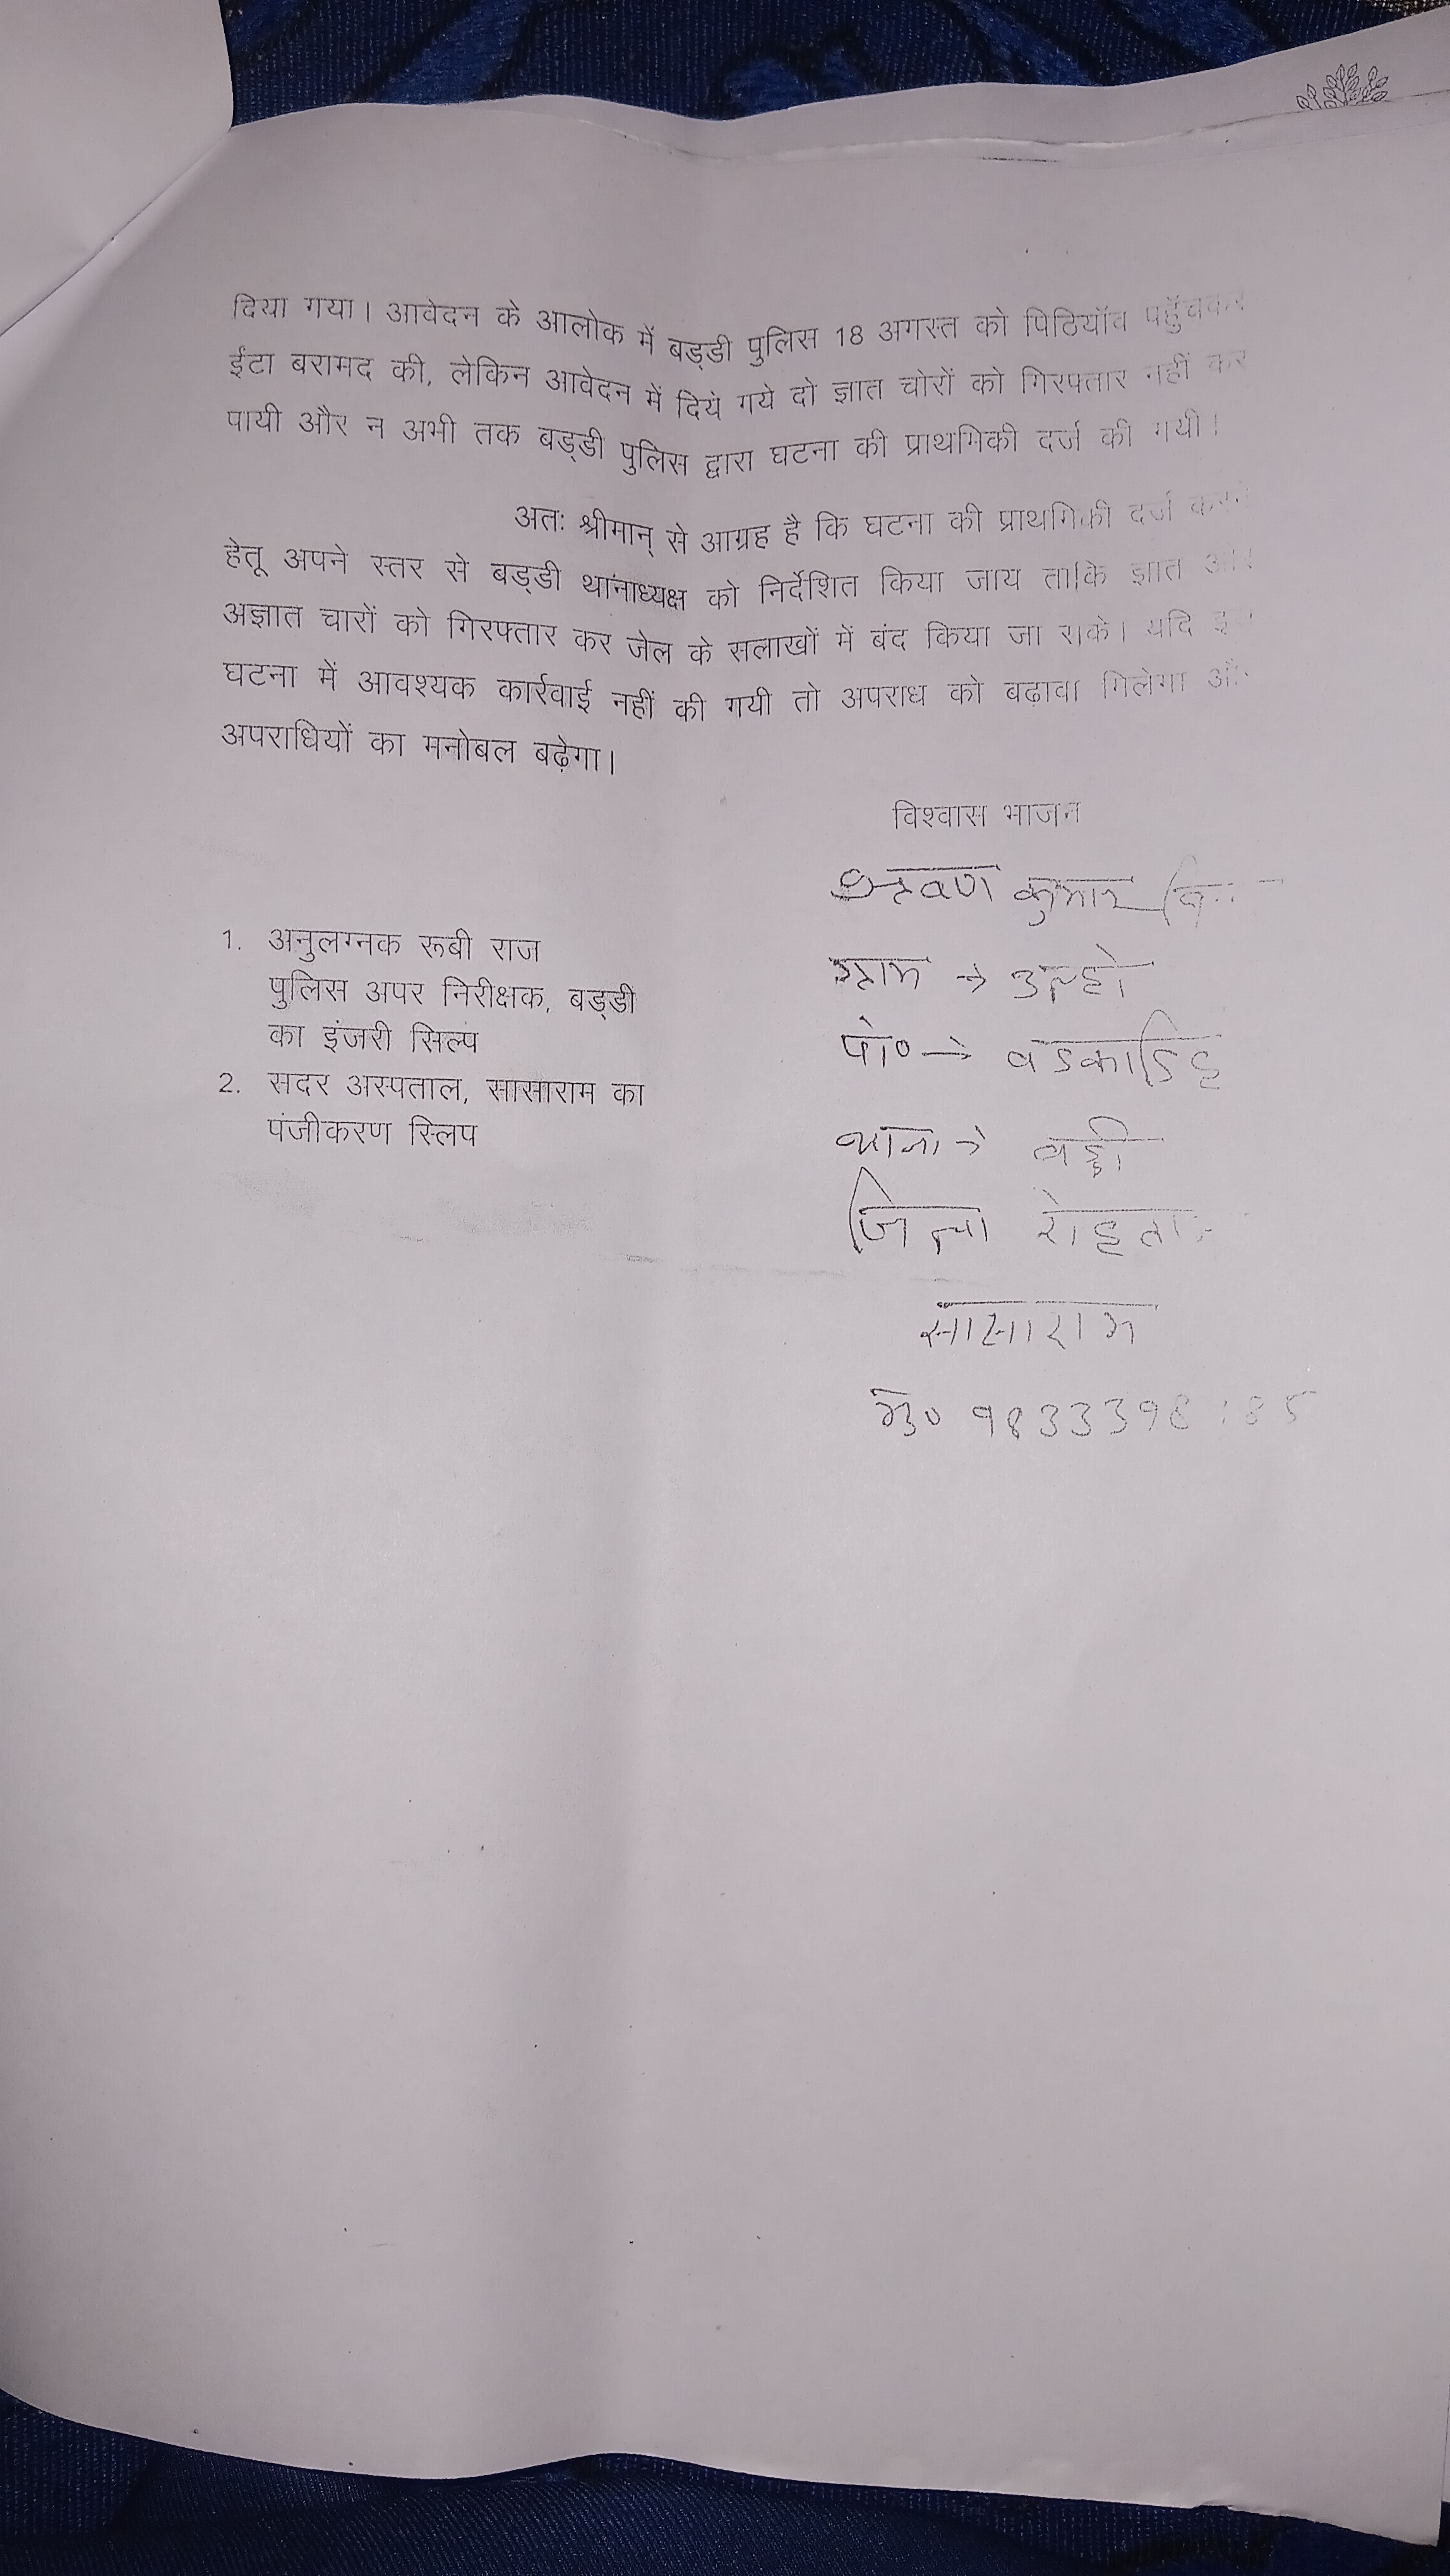 दिया गया। आवेदन के आलोक में बड्डी पुलिस 18 अगस्त को पिठियाँव पहुँचकर
ईंटा बरामद की, लेकिन आवेदन में दिये गये दो ज्ञात चोरों को गिरफ्तार नहीं कर
पायी और न अभी तक बड्डी पुलिस द्वारा घटना की प्राथमिकी दर्ज की गयी।
अतः श्रीमान् से आग्रह है कि घटना की प्राथमिकी दर्ज करने
हेतू अपने स्तर से बड्डी थांनाध्यक्ष को निर्देशित किया जाय ताकि ज्ञात और
अज्ञात चारों को गिरफ्तार कर जेल के सलाखों में बंद किया जा सके। यदि इस
घटना में आवश्यक कार्रवाई नहीं की गयी तो अपराध को बढ़ावा मिलेगा और
अपराधियों का मनोबल बढ़ेगा।
विश्वास भाजन
श्रवण कुमार
ग्राम → उन्हो
पो० → बडकाडिह
थाना → बड्डी
जिला रोहतास
सासाराम
मो०
1. अनुलग्नक रूबी राज
पुलिस अपर निरीक्षक, बड्डी
का इंजरी सिल्प
2. सदर अस्पताल, सासाराम का
पंजीकरण स्लिप